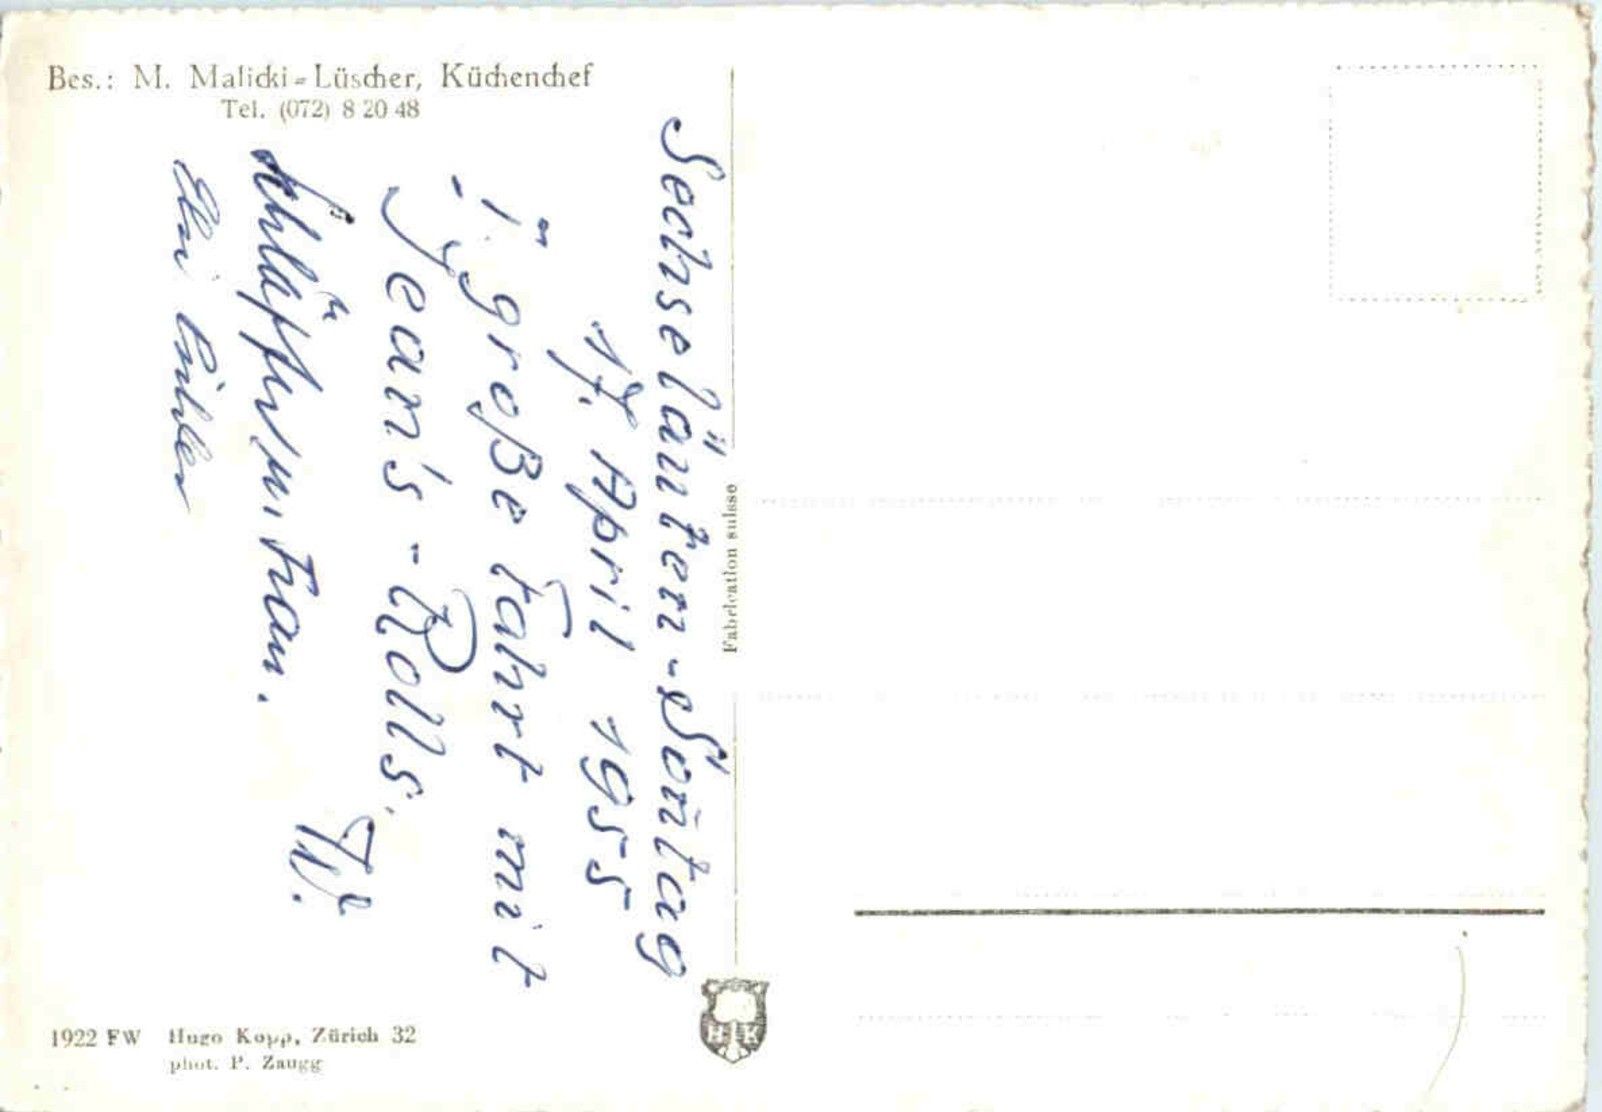 Bes.: M. Malicki-Lüscher, Küchenchef
Tel. (072) 8 20 48
Sechseläuten-Soñtag
17. April 1955
1. große Fahrt mit
Jean's - Rolls.
W.
u. Frau.
Elsi
Fabrication suisse
H K
1922 FW Hugo Kopp, Zürich 32
phot. P. Zaugg